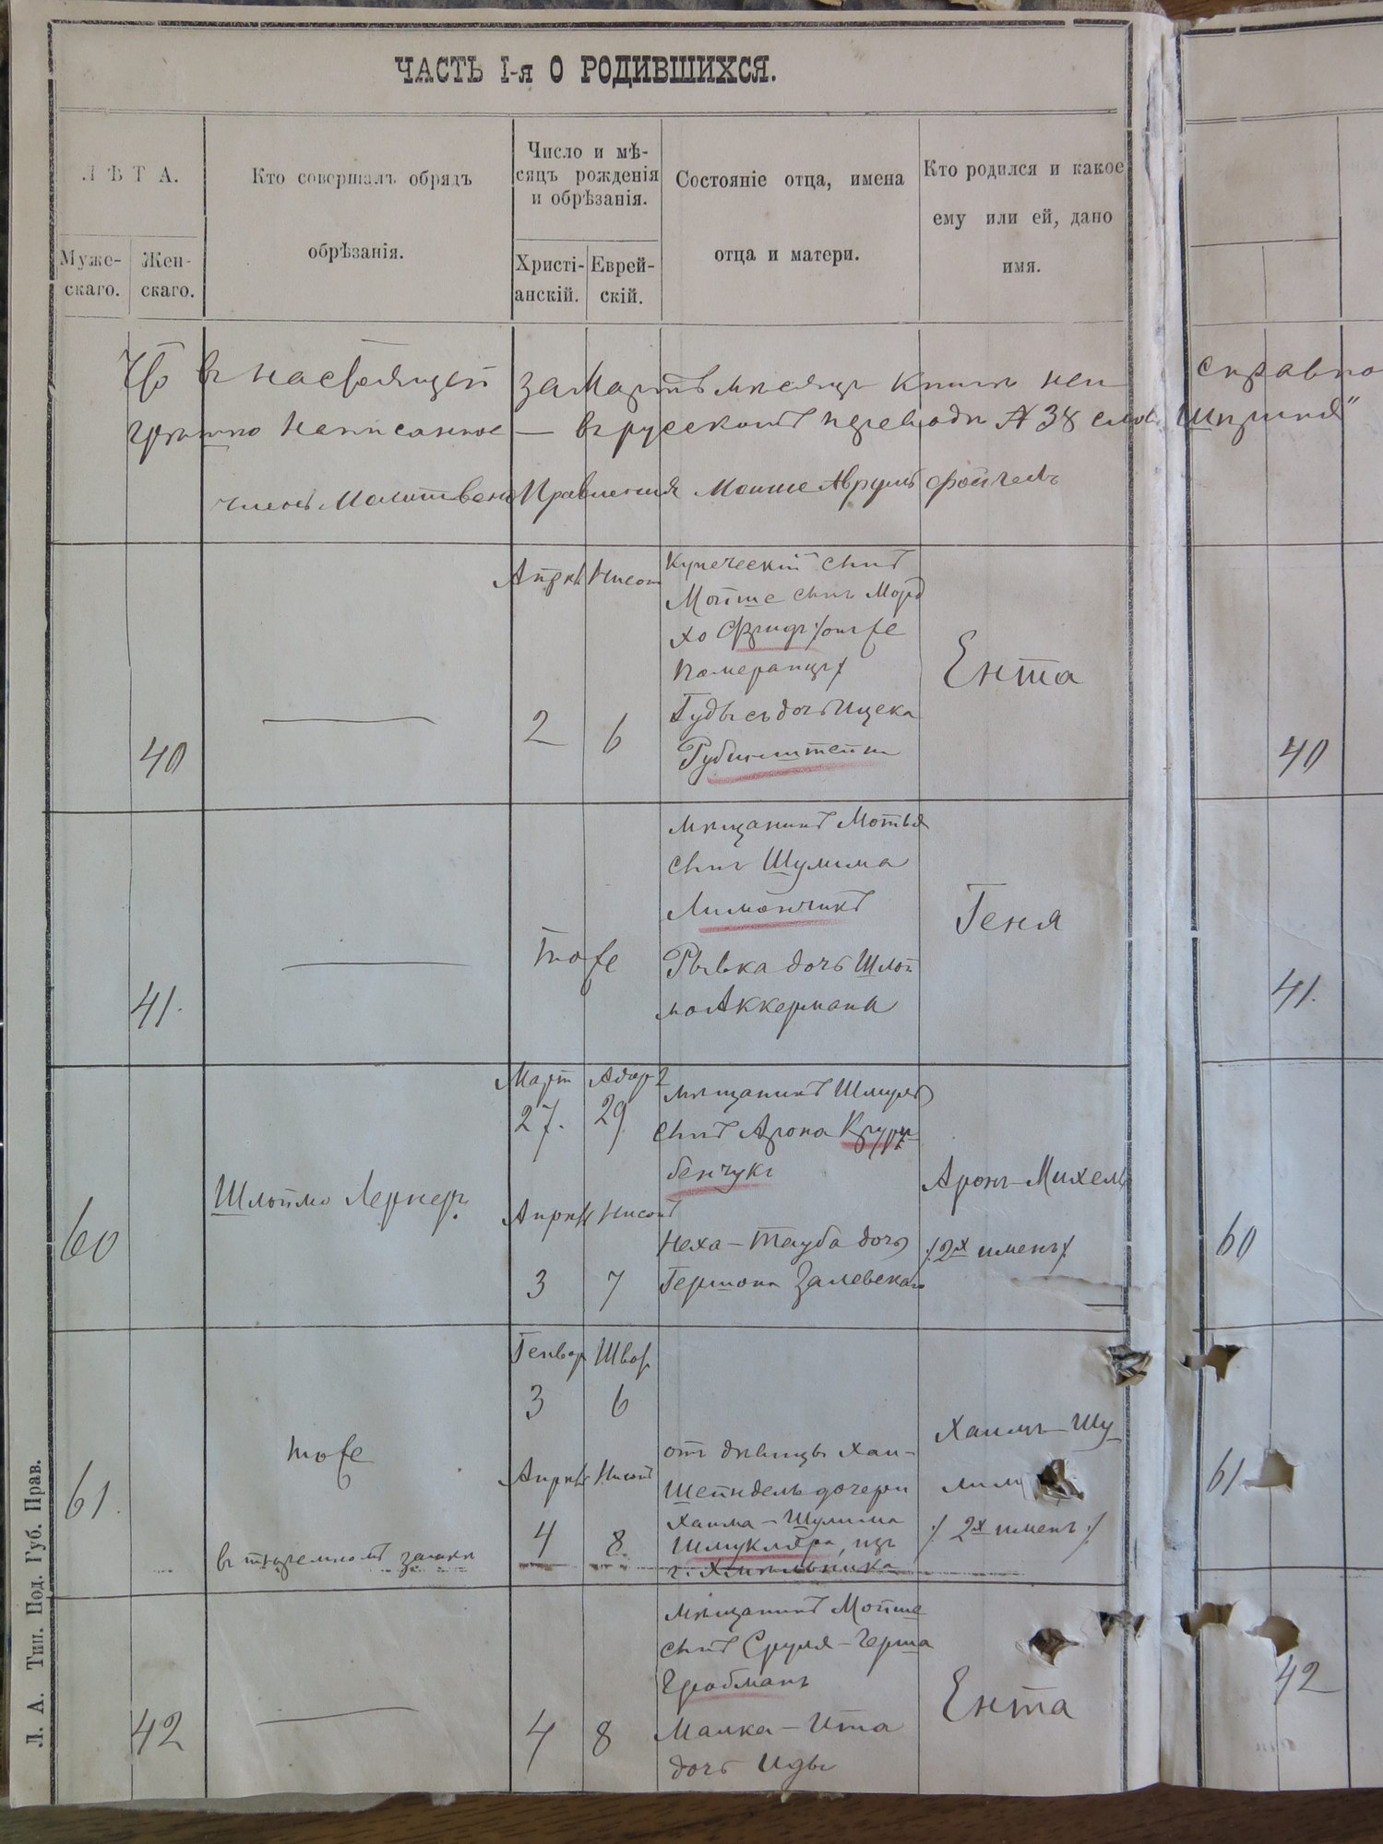 ЧАСТЬ I-я О РОДИВШИХСЯ.
ЛѢТА.
Муже-
скаго.
Жен-
скаго.
Кто совершалъ обрядъ
обрѣзанія.
Число и мѣ-
сяцъ рожденія
и обрѣзанія.
Христі-
анскій.
Еврей-
скій.
Состояніе отца, имена
отца и матери.
Кто родился и какое
ему или ей, дано
имя.
Что въ настоящей за Мартъ мѣсяцъ книги
написанное — въ русскомъ переводѣ № 38
членъ Молитвен Правленія Мойше Аврумъ
40
Апрѣл
2
Нисонъ
6
Купеческій сынъ
Мойше сынъ Морд
хо Фридъ /онъ же
Померанцъ/
дочь Ицека
Рубинштейнъ
Ента
40
41.
тоже
мѣщанинъ Мотья
сынъ Шулима
Лимончикъ
Рывка дочь Шлой
мо Аккермана
Геня
41.
60
Шлоймо Лернеръ.
Март
27.
Апрѣл
3
Адар 2
29
Нисонъ
7
мѣщанинъ Шмуль
сынъ Арона
бенчукъ
Неха-Тауба дочь
Гершона Залевскаго
Аронъ-Михель
/2х именъ/
60
61.
тоже
въ тюремномъ замкѣ
Генвар
3
Апрѣл
4
Шват
6
Нисонъ
8.
отъ дѣвицы Хаи-
Шейндель дочери
Хаима-Шулима
Шмукляра, изъ
г. Хмѣльника
Хаимъ-Шу
лим
/2х именъ/
61
42
4
8
мѣщанинъ Мойше
сынъ Сруля-Герша
Гробманъ
Малка-Ита
дочь Иды
Ента
42
Л. А. Тип. Под. Губ. Прав.